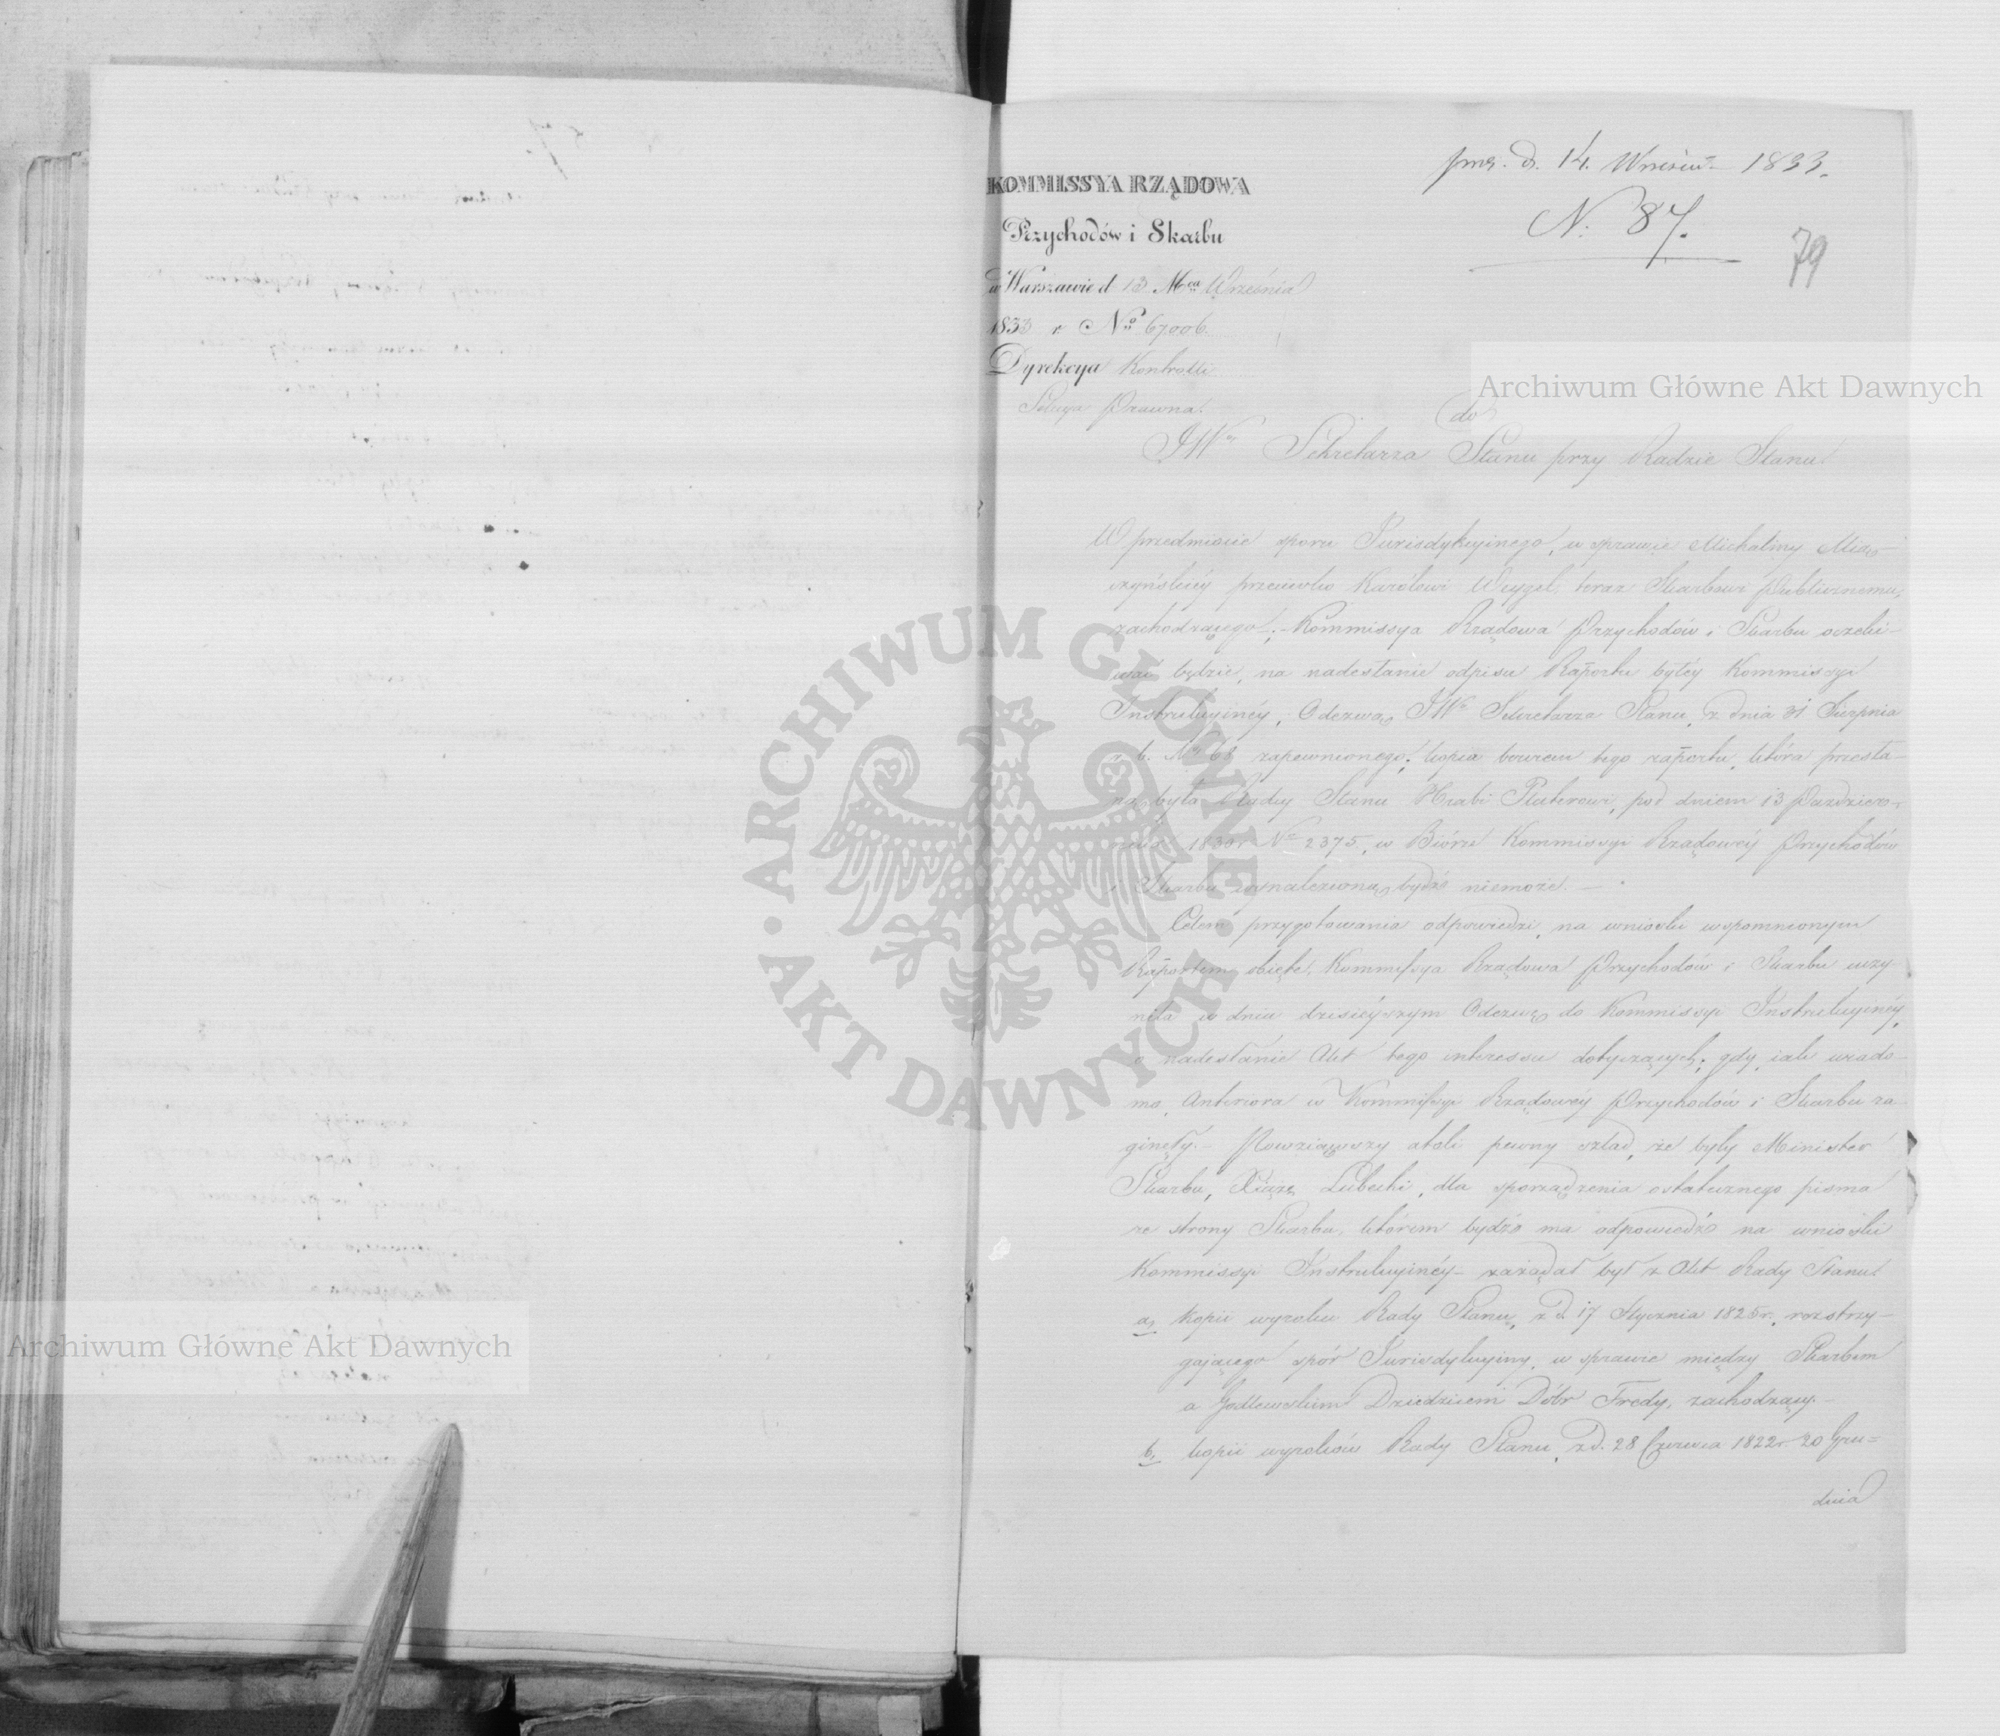 prez. d. 14. Wrześn. 1833.
N. 87.
79
KOMMISSYA RZĄDOWA
Przychodów i Skarbu
w Warszawie d 13 Mca Września
1833 r. No 67006.
Dyrekcya Kontrolli
Sekcya Prawna.
do
JWo Sekretarza Stanu przy Radzie Stanu.
W przedmiocie sporu Jurisdykcyinego, w sprawie Michaliny
przeciwko Karólowi Weygel, teraz Skarbowi Publicznemu,
zachodzącego; Kommissya Rządowa Przychodów i Skarbu oczeki-
wać będzie, na nadesłanie odpisu Raportu byłéy Kommissyi
Instrukcyinéy, Odezwą JWo Sekretarza Stanu, z dnia 31 Sierpnia
r. b. No 68 zapewnionego; kopia bowiem tego raportu, która przesła-
na była Radcy Stanu Hrabi Platerowi, pod dniem 13 Paździer-
nika 1830 r No 2375, w Biórze Kommissyi Rządowéy Przychodów
i Skarbu wynalezioną bydź niemoże. —
Celem przygotowania odpowiedzi, na wnioski wspomnionym
Raportem objęte, Kommissya Rządowa Przychodów i Skarbu uczy-
niła w dniu dzisiéyszym Odezwę do Kommissyi Instrukcyinéy,
o nadesłanie Akt tego interessu dotyczących; gdy, iak wiado-
mo, Anteriora w Kommissyi Rządowey Przychodów i Skarbu za-
ginęły. — Powziąwszy atoli pewny ślad, że były Minister
Skarbu, Xiąże Lubecki, dla sporządzenia ostatecznego pisma
ze strony Skarbu, którem bydź ma odpowiedź na wnioski
Kommissyi Instrukcyinéy — zażądał był z Akt Rady Stanu.
a, kopii wyroku Rady Stanu, z d. 17 Stycznia 1825 r. rozstrzy-
gającego spór Jurisdykcyiny, w sprawie między Skarbem
a Godlewskim Dziedzicem Dóbr Fredy, zachodzący. —
b, kopii wyroków Rady Stanu, z d. 28 Czerwca 1822 r 20 Gru-
dnia
Archiwum Główne Akt Dawnych
Archiwum Główne Akt Dawnych
ARCHIWUM GŁÓWNE AKT DAWNYCH